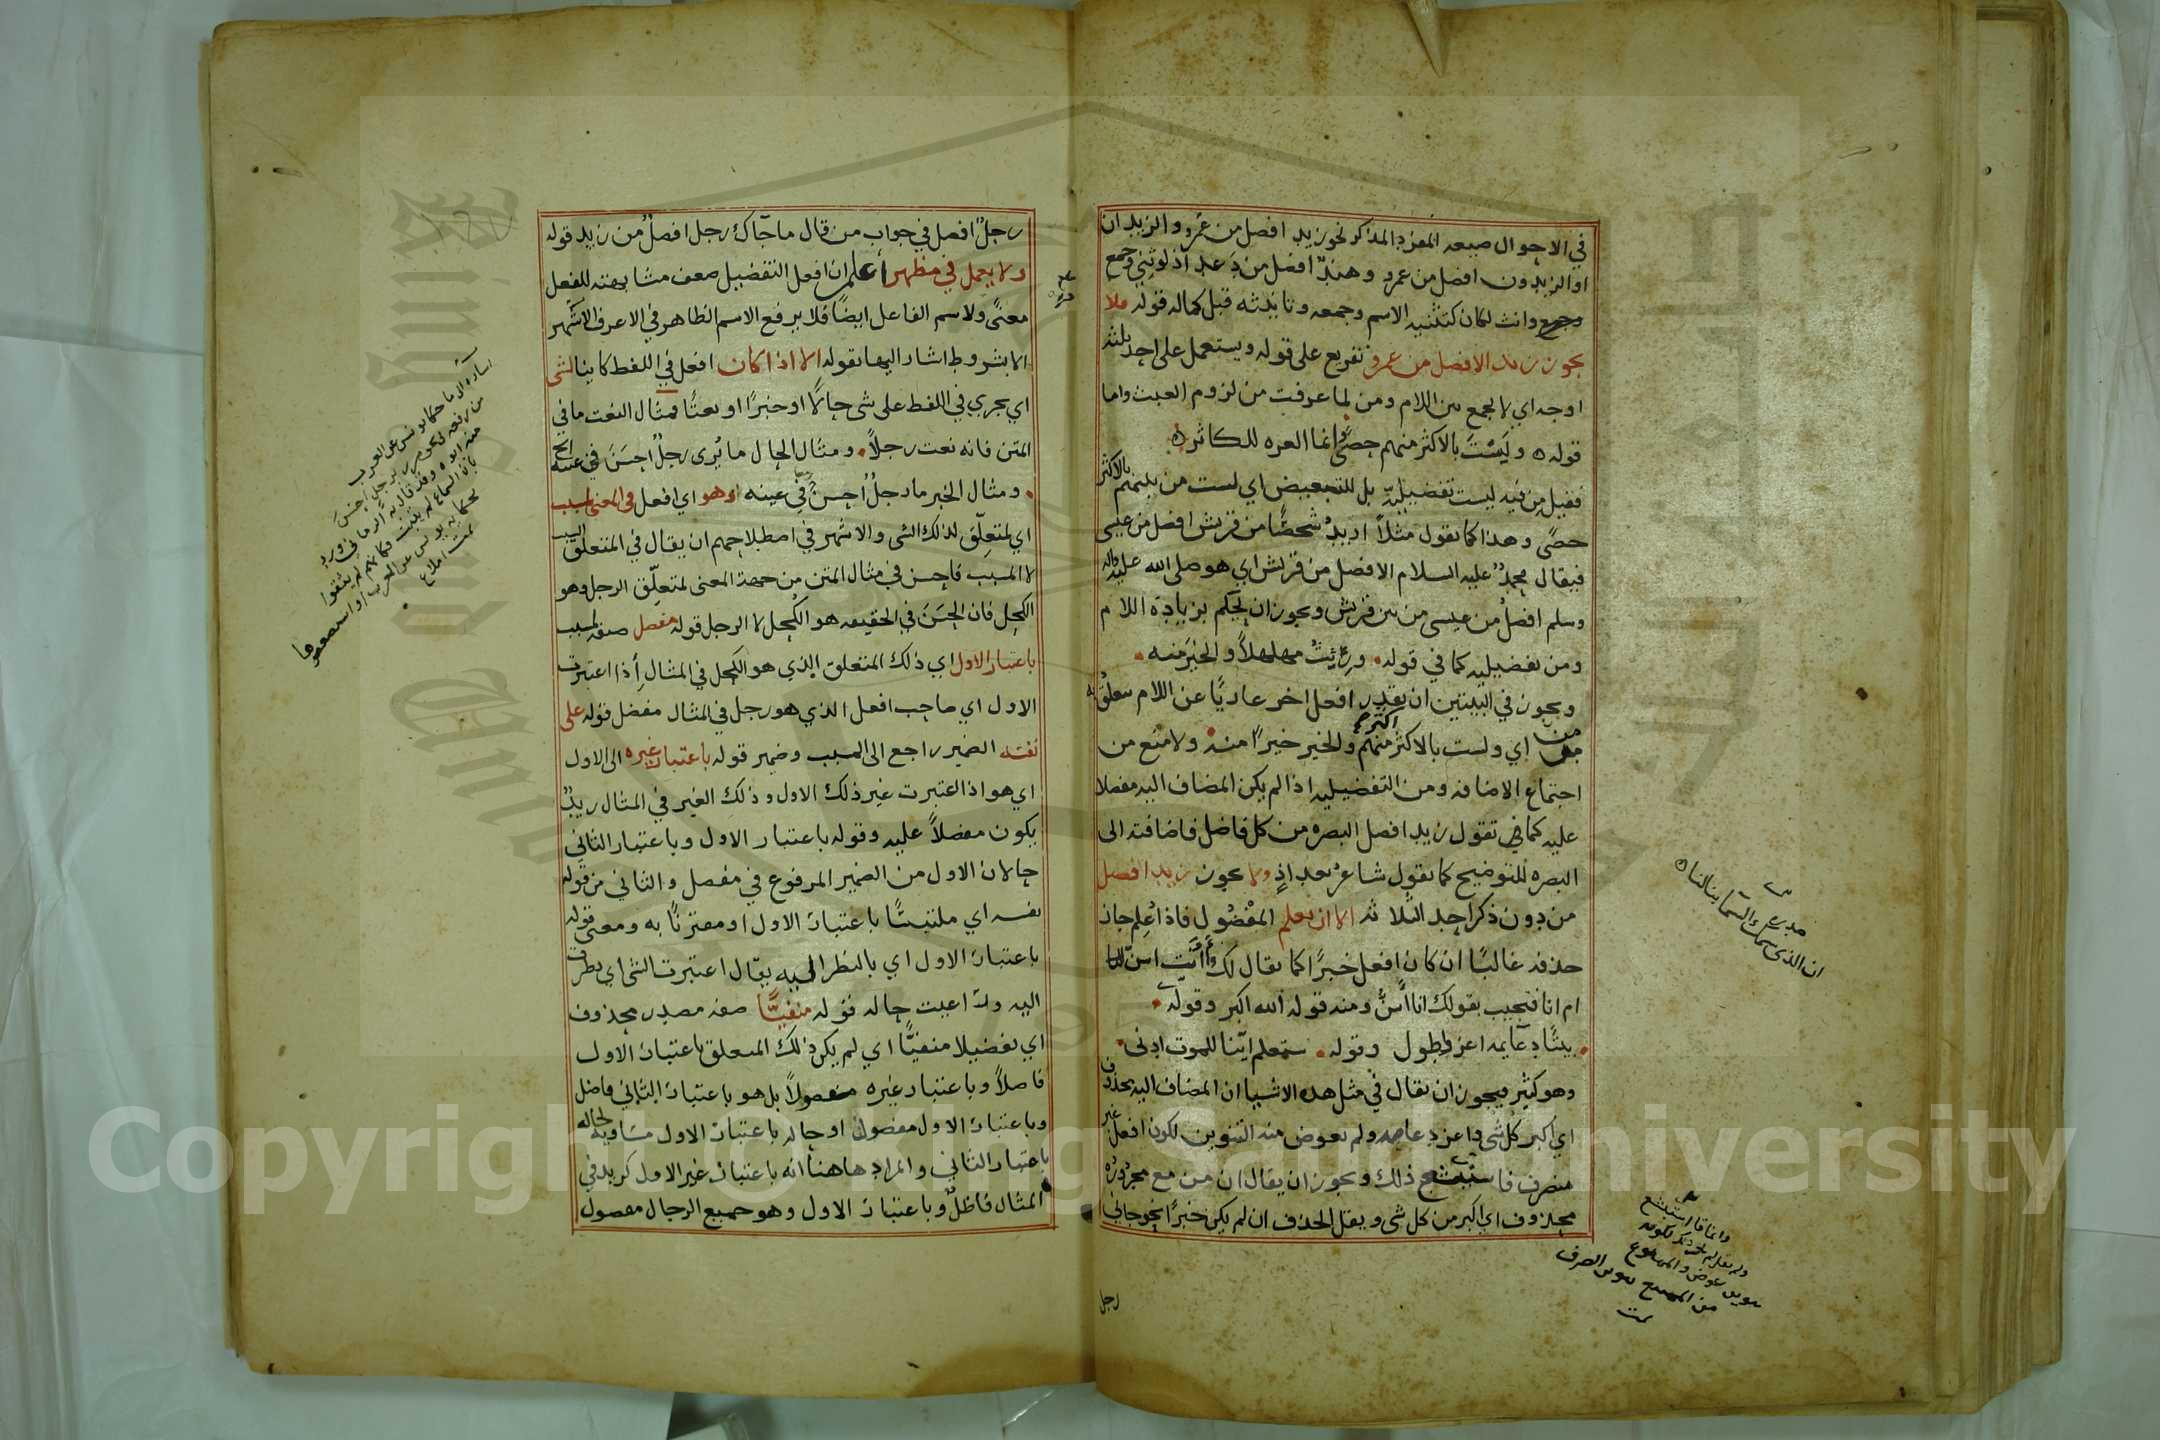 في الاحوال صيعه المفرد المذكر نحو زيد افضل من عمرو والزيدان
او الزيدون افضل من عمرو وهندٌ افضل من دعد اذ لو ثني وجمع
وانث لكان كتثنيه الاسم وجمعه وتانيثه قبل كماله قوله فلا
يجوز زيد الافضل من عمرو تفريع على قوله ويستعمل على احد ثلثه
اوجه اي لا يجمع بين اللام ومن لما عرفت من لزوم العبث واما
قوله ه ولَسْتَ بالاكثر منهم حصًى وانما العزه للكاثر ه
فقيل مِن فيه ليست تفضيليةً بل للتبعيض اي لست من بينهم بالاكثر
حصًى وهذا كما يقول مثلاً اريدُ شخصًا من قريش افضل من عيسى
فيقال محمدٌ عليه السلام الافضل من قريش اي هو صلى الله عليه واله
وسلم افضل من عيسى من بين قريش ويجوز ان يحكم بزيادة اللام
ومن تفضيليه كما في قوله ورِثتُ مهلهلاً والخيرَ منه
ويجوز في البيتين ان يقدر افعل اخر عاريًا عن اللام يتعلق به
من اي ولست بالاكثر اكثر منهم والخير خيرًا منه ولا منع من
اجتماع الاضافه ومن التفضيليه اذا لم يكن المضاف اليه مفضلا
عليه كما في تقول زيد افضل البصره من كل فاضل فاضافته الى
البصره للتوضيح كما يقول شاعر بغداذ ولا يجوز زيد افضل
من دون ذكر احد الثلاثه الا ان يعلم المفْضُول فاذا عُلِم جاز
حذفه غالبًا ان كان افعل خبرًا كما يقال لك أأنت اسنّ
ام انا فتجيب بقولك انا اسنُّ ومنه قوله الله اكبر وقوله
بيتًا دعآيمه اعز واطول وقوله ستعلم ايّنا للموت ادنى
وهو كثير ويجوز ان يقال في مثل هذه الاشيا ان المضاف اليه محذوف
اي اكبر كل شى واعز دعامه ولم يعوض منه التنوين لكون افعل غير
منصرف فاستبشع ذلك ويجوز ان يقال ان من مع مجروره
محذوف اي اكبر من كل شى ويقل الحذف ان لم يكن خبرًا نحو جاني
رجل
ان الذي سمك السما بنى لنا ه
رجلٌ افضل في جواب من قال ما جآك رجل افضلُ من زيد قوله
ولا يعمل في مظهر اعلم ان افعل التفضيل ضعف مشابهته للفعل
معنًى ولاسم الفاعل ايضًا فلا يرفع الاسم الظاهر في الاعرف الاشهر
الا بشروط اشار اليها بقوله الا اذا كان افعل في اللفظ كاينا لشى
اي يجري في اللفظ على شى حالاً او خبرًا او نعتًا فمثال النعت ما في
المتن فانه نعت رجلاً ومثال الحال ما يُرى رجلٌ احسَنَ في عينه الخ
ومثال الخبر ما رجلٌ احسنُ في عينه وهو اي افعل في المعنى لمسبب
اي لمتعلِّق لذلك الشى والاشهر في اصطلاحهم ان يقال في المتعلق السبب
لا المسبب فاحسن في مثال المتن من جهة المعنى لمتعلِّق الرجل وهو
الكحل فان الحسَنَ في الحقيقه هو الكُحل لا الرجل قوله مفضل صفه لمسبب
باعتبار الاول اي ذلك المتعلق الذي هو الكحل في المثال إذا اعتبرت
الاول اي صاحب افعل الذي هو رجل في المثال مفضل قوله على
نفسه الضمير راجع الى المسبب وضمير قوله باعتبار غيره الى الاول
اي هو اذا اعتبرت غير ذلك الاول وذلك الغير في المثال زيدٌ
يكون مفضلاً عليه وقوله باعتبار الاول وباعتبار الثاني
حالان الاول من الضمير المرفوع في مفضل والثاني من قوله
نفسه اي ملتبسًا باعتبار الاول او مقترنًا به ومعنى قوله
باعتبار الاول اي بالنظر اليه يقال اعتبرت الشى اي نظرت
اليه وراعيت حاله قوله منفيًّا صفه مصدر محذوف
اي تفضيلا منفيًّا اي لم يكن ذلك المتعلق باعتبار الاول
فاضلاً وباعتبار غيره مفضولاً بل هو باعتبار الثاني فاضل
وباعتبار الاول مفضول او حاله باعتبار الاول مساويه لحاله
باعتبار الثاني والمراد هاهنا انه باعتبار غير الاول كزيد في
المثال فاضلٌ وباعتبار الاول وهو جميع الرجال مفضول
Copyright © King Saud University